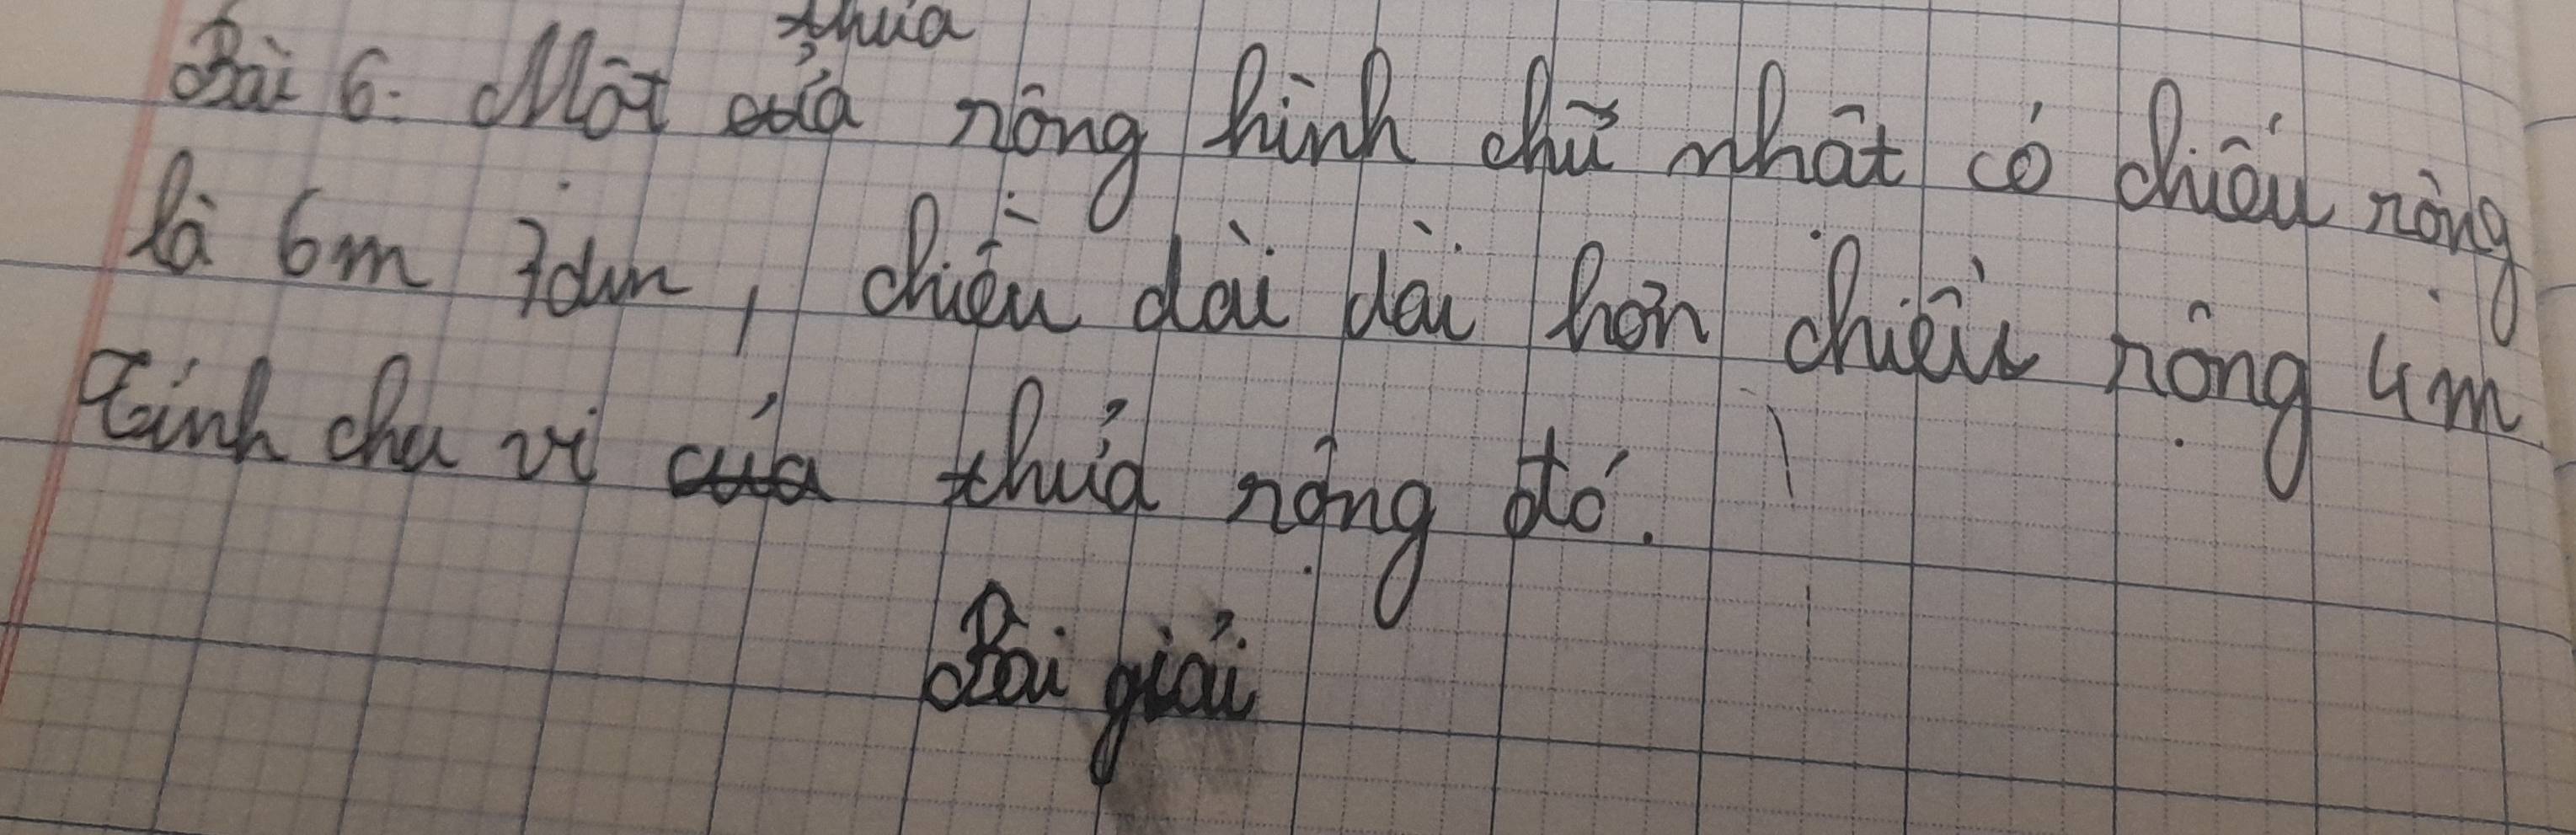 thửa
Bài 6. Một rộng hình chữ nhật có chiếu rộng
là 6m 7dm, chiều dài dài hơn chiều rộng 4m
Tính chu vi của thửa rộng đó.
Bài giải